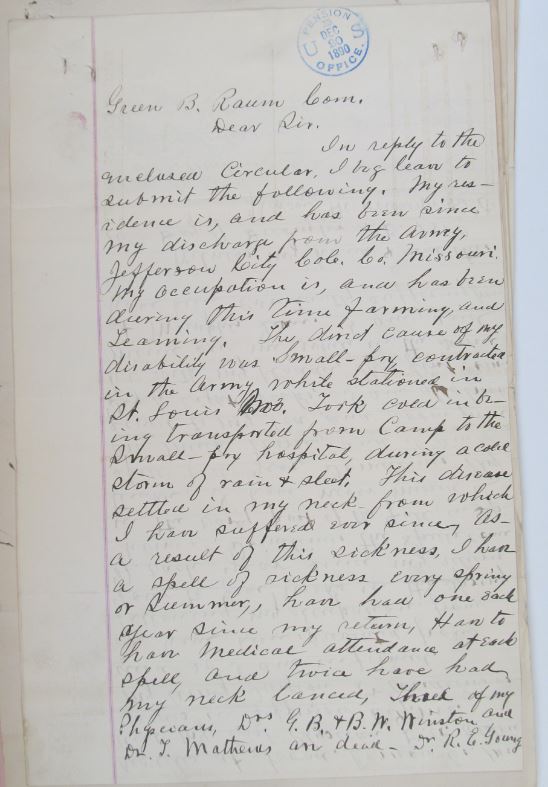 U S PENSION OFFICE
DEC
20
1890
Green B. Raum Com.
Dear Sir.
In reply to the
enclosed Circular, I beg leave to
submit the following. My res-
idence is, and has been since
my discharge from the Army,
Jefferson City Cole. Co. Missouri.
My occupation is, and has been
during this time farming, and
Teaming. The direct cause of my
disability was Small-pox, contracted
in the Army while stationed in
St. Louis Mo. Took cold in be-
ing transported from Camp to the
Small-pox hospital, during a cold
storm of rain & sleet. This disease
settled in my neck from which
I have suffered ever since, As-
a result of this sickness, I have
a spell of sickness every spring
or Summer, have had one each
year since my return, Have to
have Medical attendance at each
spell, and twice have had
my neck lanced, Three of my
Physicians, Drs G. B. & B. W. Winston and
Dr. T. Mathews are dead - Dr. R. E. Young